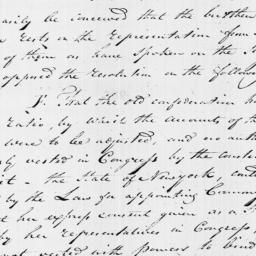 easily be conceived that the burthen
rests on the representation from
of them as have spoken on the
opposed the resolution on the follow
1. That the old confederation h
ratio, by which the amounts of th
were to be adjusted, and no auth
vested in Congress by the const
the State of Newyork, cont
by the Laws for appointing Commis
her express consent given as a
by her representatives in Congress
not vested with powers to bind